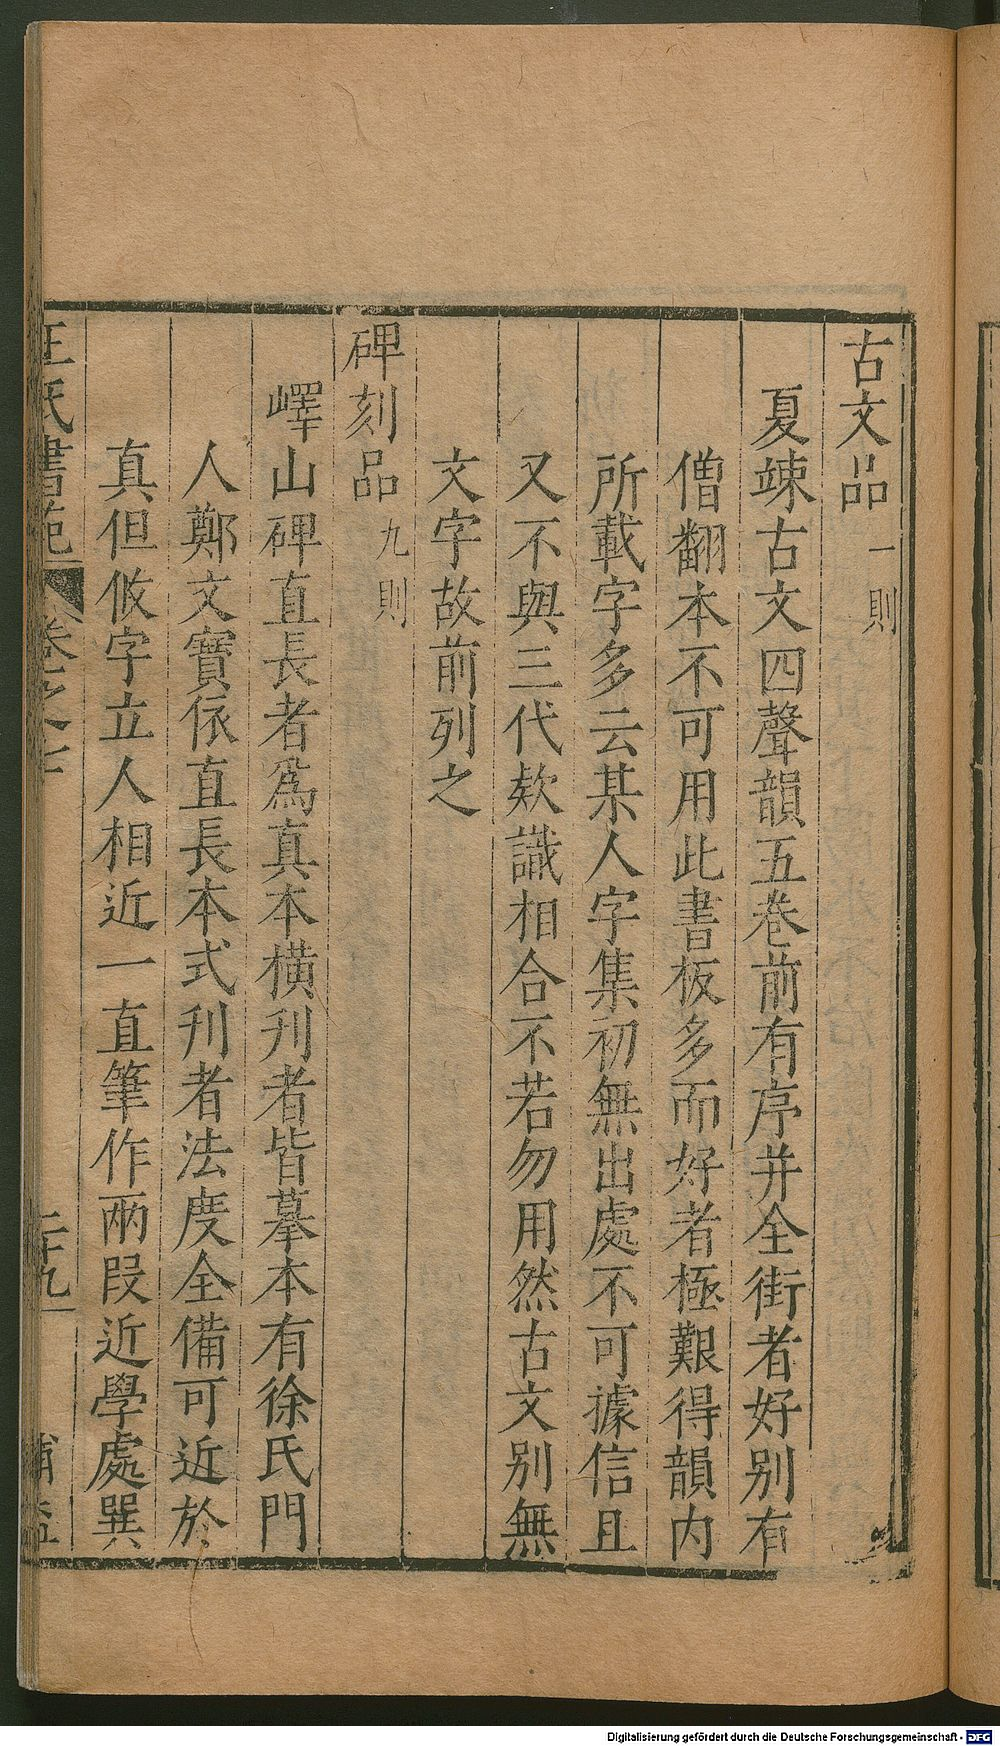 古文品一則
夏竦古文四聲韻五巻前有序并全銜者好别有
僧翻本不可用此書板多而好者極艱得韻内
所載字多云某人字集初無出處不可據信且
又不與三代欵識相合不若勿用然古文别無
文字故前列之
碑刻品九則
嶧山碑直長者為真本横刋者皆摹本有徐氏門
人鄭文寳依直長本式刋者法度全備可近於
真但攸字立人相近一直筆作兩段近學處巽
王氏書苑 卷之七 二十九
Digitalisierung gefördert durch die Deutsche Forschungsgemeinschaft - DFG